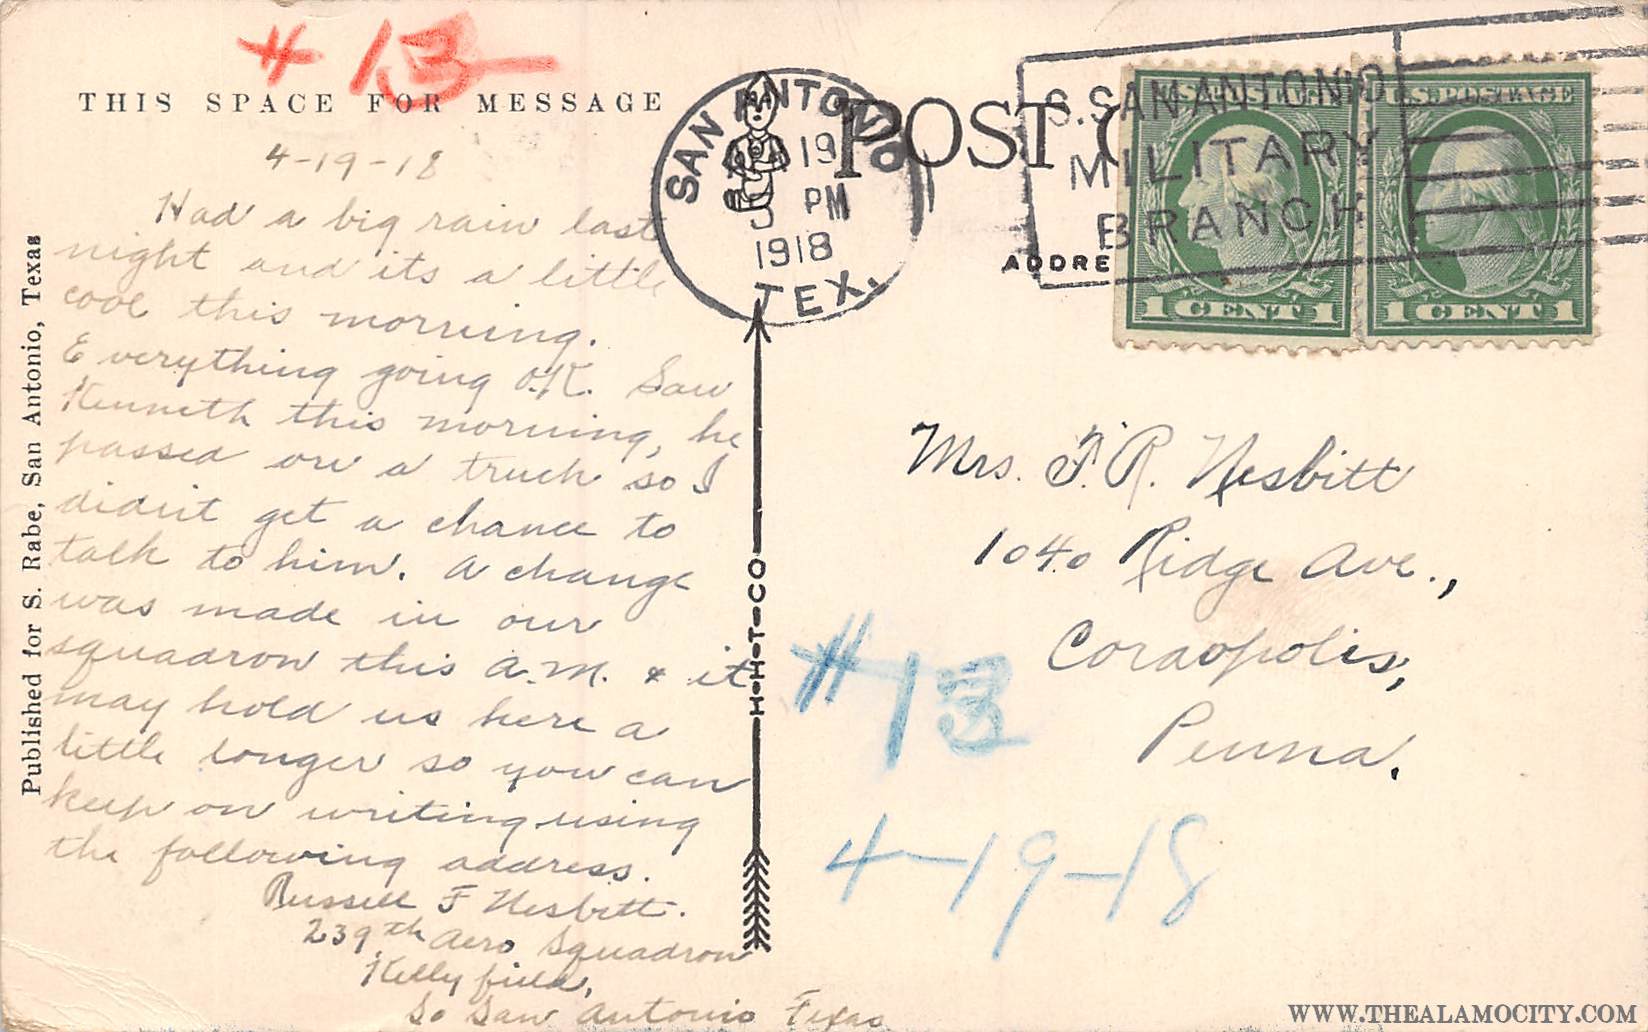 # 13
THIS SPACE FOR MESSAGE
4-19-18
Had a big rain last
night and its a little
cool this morning.
Everything going O.K. Saw
Kenneth this morning, he
passed on a truck so I
didn't get a chance to
talk to him. A change
was made in our
squadron this A.M. & it
may hold us here a
little longer so you can
keep on writing using
the following address.
Russell F Nesbitt.
239th Aero Squadron
Kelly field,
So San Antonio Texas
Published for S. Rabe, San Antonio, Texas
H-H-T-CO
SAN ANTONIO
19
PM
1918
TEX.
POST C
ADDRE
S. SAN ANTONIO
MILITARY
BRANCH
U.S. POSTAGE
1 CENT 1
U.S. POSTAGE
1 CENT 1
Mrs. F. R. Nesbitt
1040 Ridge Ave.,
Coraopolis,
Penna.
# 13
4-19-18
WWW.THEALAMOCITY.COM